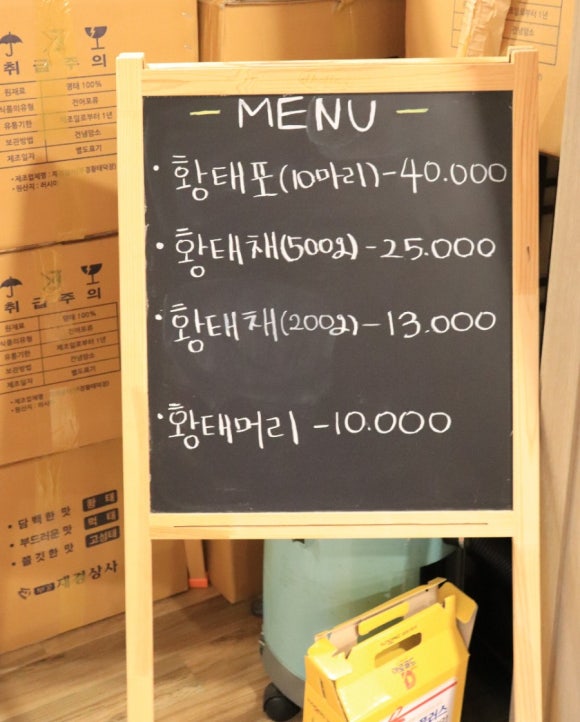 - MENU -
· 황태포(10마리)-40.000
· 황태채(500g)-25.000
· 황태채(200g)-13.000
· 황태머리 -10.000
취급주의
원재료 명태 100%
식품의유형 건어포류
유통기한 제조일로부터 1년
보관방법 건냉암소
제조일자 별도표기
취급주의
원재료 명태 100%
식품의유형 건어포류
유통기한 제조일로부터 1년
보관방법 건냉암소
제조일자 별도표기
• 담백한 맛 황태
• 부드러운 맛 먹태
• 쫄깃한 맛 고성태
재경상사